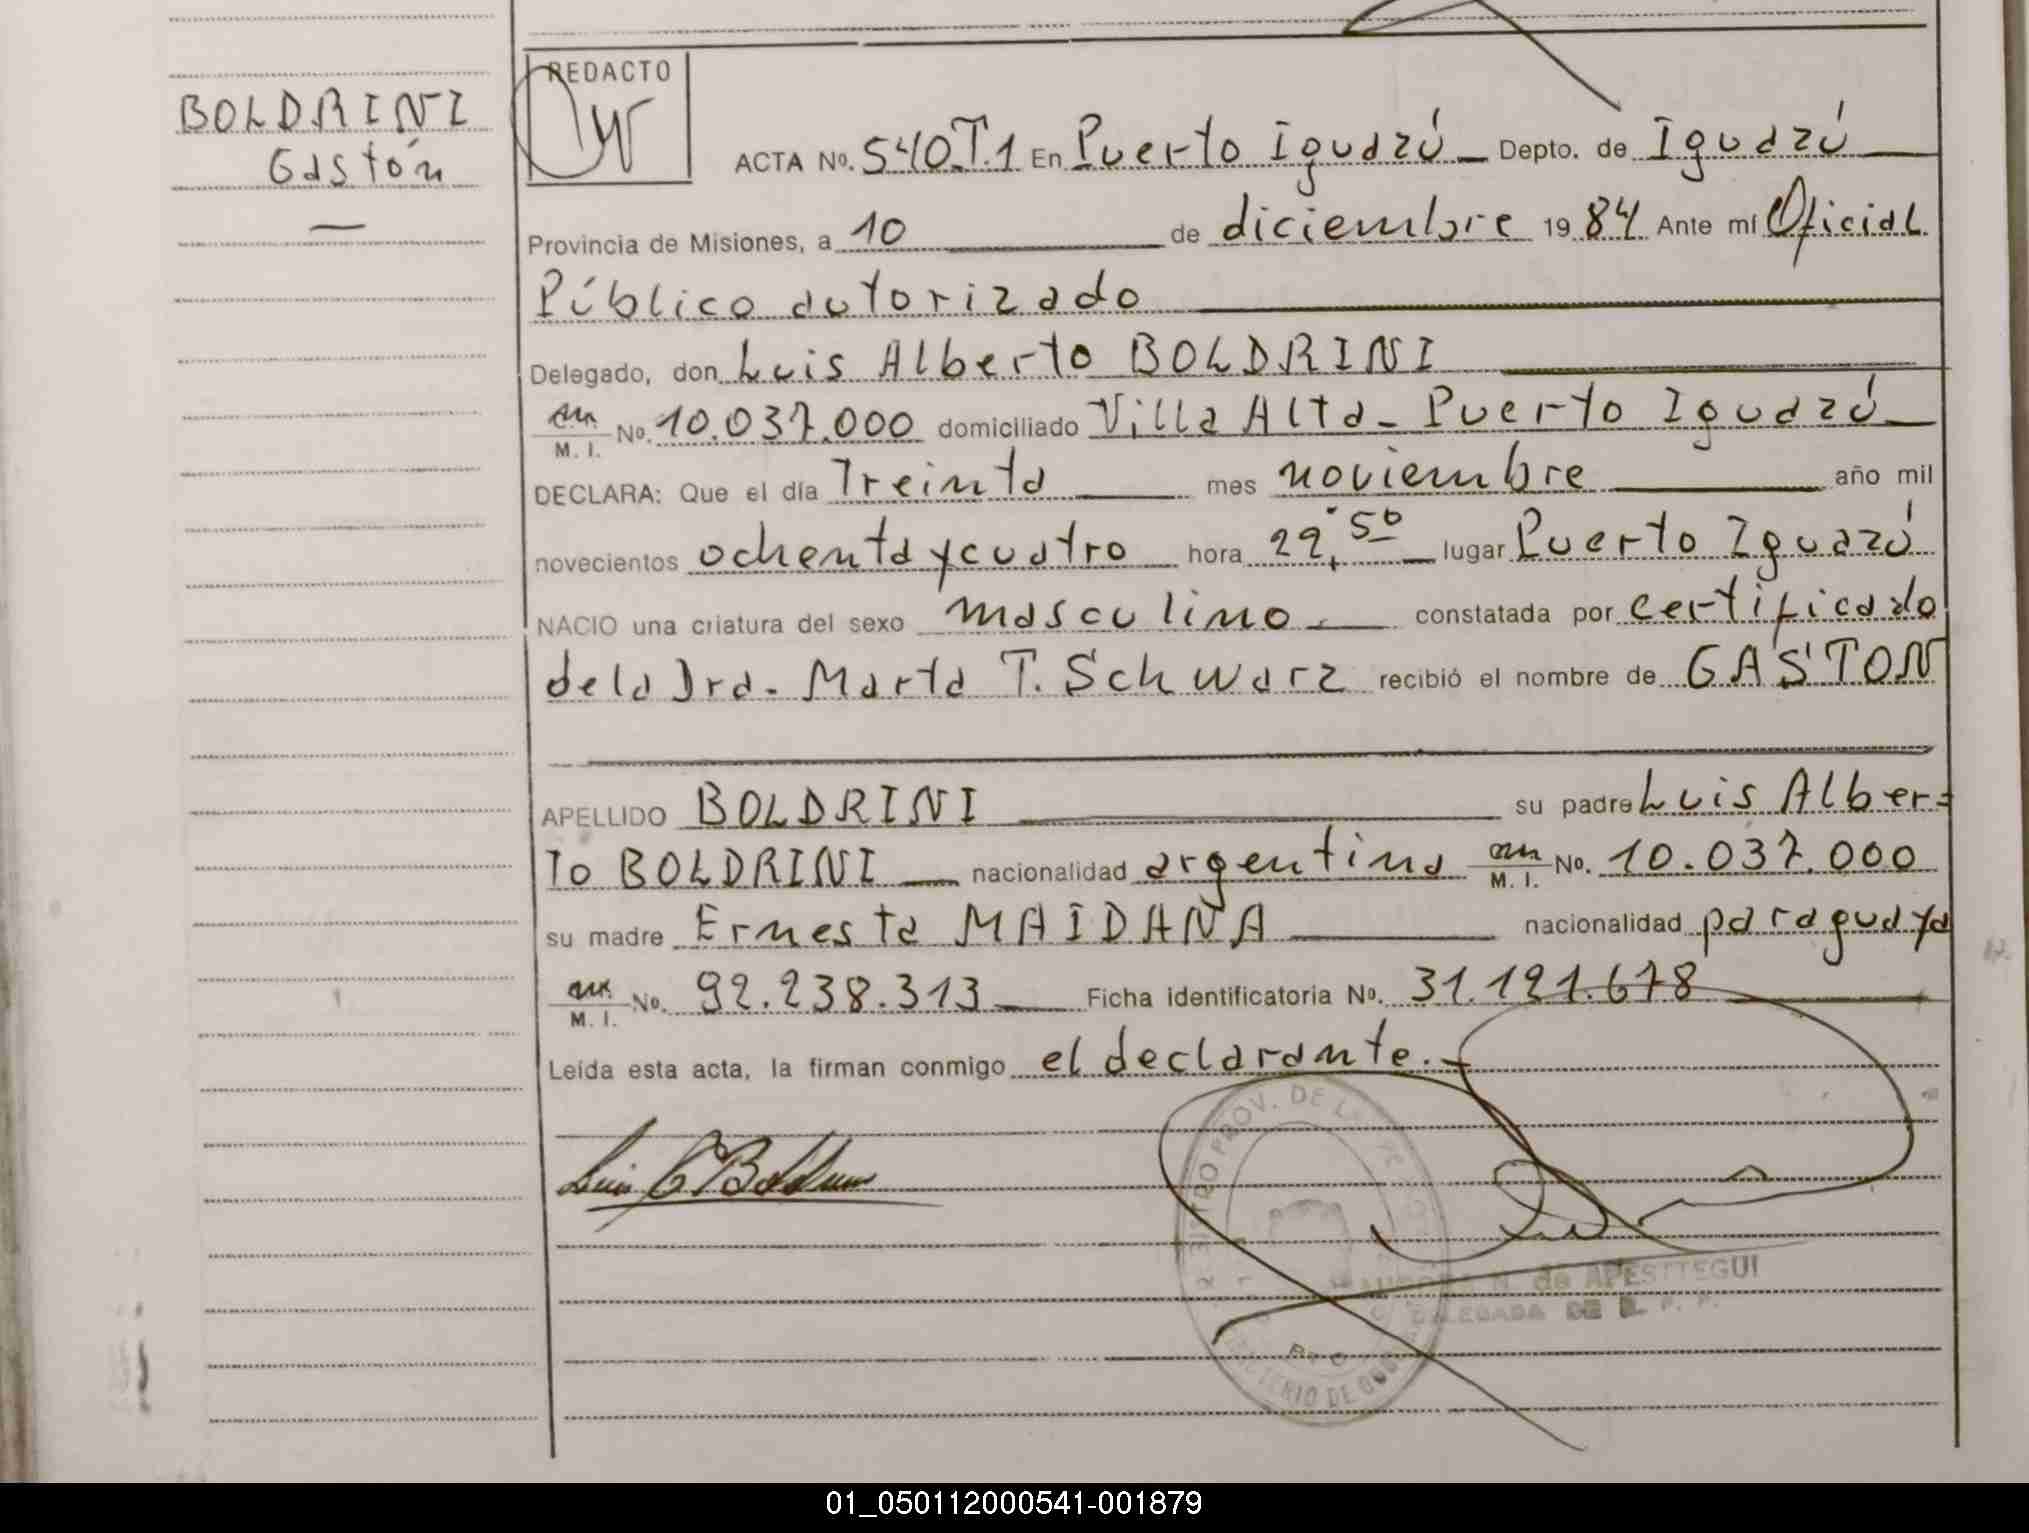 BOLDRINI
Gastón
REDACTO
ACTA No. 540.T.1 En Puerto Iguazú Depto. de Iguazú
Provincia de Misiones, a 10 de diciembre 1984 Ante mí Oficial
Público autorizado
Delegado, don Luis Alberto BOLDRINI
M. I. No. 10.037.000 domiciliado Villa Alta - Puerto Iguazú
DECLARA: Que el día Treinta mes noviembre año mil
novecientos ochenta y cuatro hora 22,50 lugar Puerto Iguazú
NACIO una criatura del sexo masculino constatada por certificado
de la Dra. Marta T. Schwarz recibió el nombre de GASTON
APELLIDO BOLDRINI su padre Luis Alber=
to BOLDRINI nacionalidad argentina M. I. No. 10.037.000
su madre Ernesta MAIDANA nacionalidad paraguaya
M. I. No. 92.238.313 Ficha identificatoria No. 31.121.678
Leída esta acta, la firman conmigo el declarante.-
N. de APESTTEGUI
DELEGADA DE
01_050112000541-001879